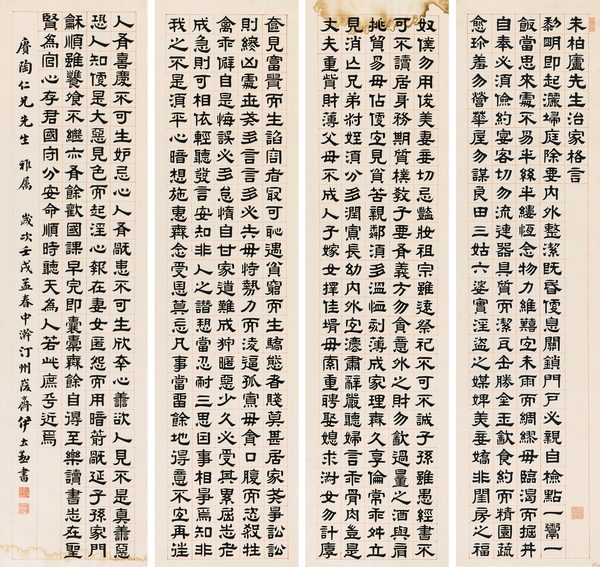 朱柏廬先生治家格言
黎明即起灑埽庭除要內外整潔既昏便息關鎖門戶必親自檢點一粥一
飯當思來處不易半絲半縷恆念物力維艱宜未雨而綢繆毋臨渴而掘井
自奉必須儉約宴客切勿流連器具質而潔瓦缶勝金玉飲食約而精園蔬
愈珍羞勿營華屋勿謀良田三姑六婆實淫盜之媒婢美妾嬌非閨房之福
奴僕勿用俊美妻妾切忌豔妝祖宗雖遠祭祀不可不誠子孫雖愚經書不
可不讀居身務期質樸教子要有義方勿貪意外之財勿飲過量之酒與肩
挑貿易毋佔便宜見貧苦親鄰須多溫恤刻薄成家理無久享倫常乖舛立
見消亡兄弟叔姪須分多潤寡長幼內外宜凜肅辭嚴聽婦言乖骨肉豈是
丈夫重貲財薄父母不成人子嫁女擇佳壻毋索重聘娶媳求淑女勿計厚
奩見富貴而生諂容者最可恥遇貧窮而生驕態者賤莫甚居家莫爭訟訟
則終凶處世莫多言言多必失毋恃勢力而凌逼孤寡毋貪口腹而恣殺牲
禽乖僻自是悔誤必多怠惰自甘家道難成狎暱惡少久必受其累屈志老
成急則可相依輕聽發言安知非人之譖愬當忍耐三思因事相爭焉知非
我之不是須平心暗想施惠無念受恩莫忘凡事當留餘地得意不宜再往
人有喜慶不可生妒忌心人有禍患不可生欣幸心善欲人見不是真善惡
恐人知便是大惡見色而起淫心報在妻女匿怨而用暗箭禍延子孫家門
龢順雖饔飧不繼亦有餘歡國課早完即囊橐無餘自得至樂讀書志在聖
賢為官心存君國守分安命順時聽天為人若此庶乎近焉
賡陶仁兄先生 雅屬 歲次壬戌孟春中澣汀州葰齋伊立勳書